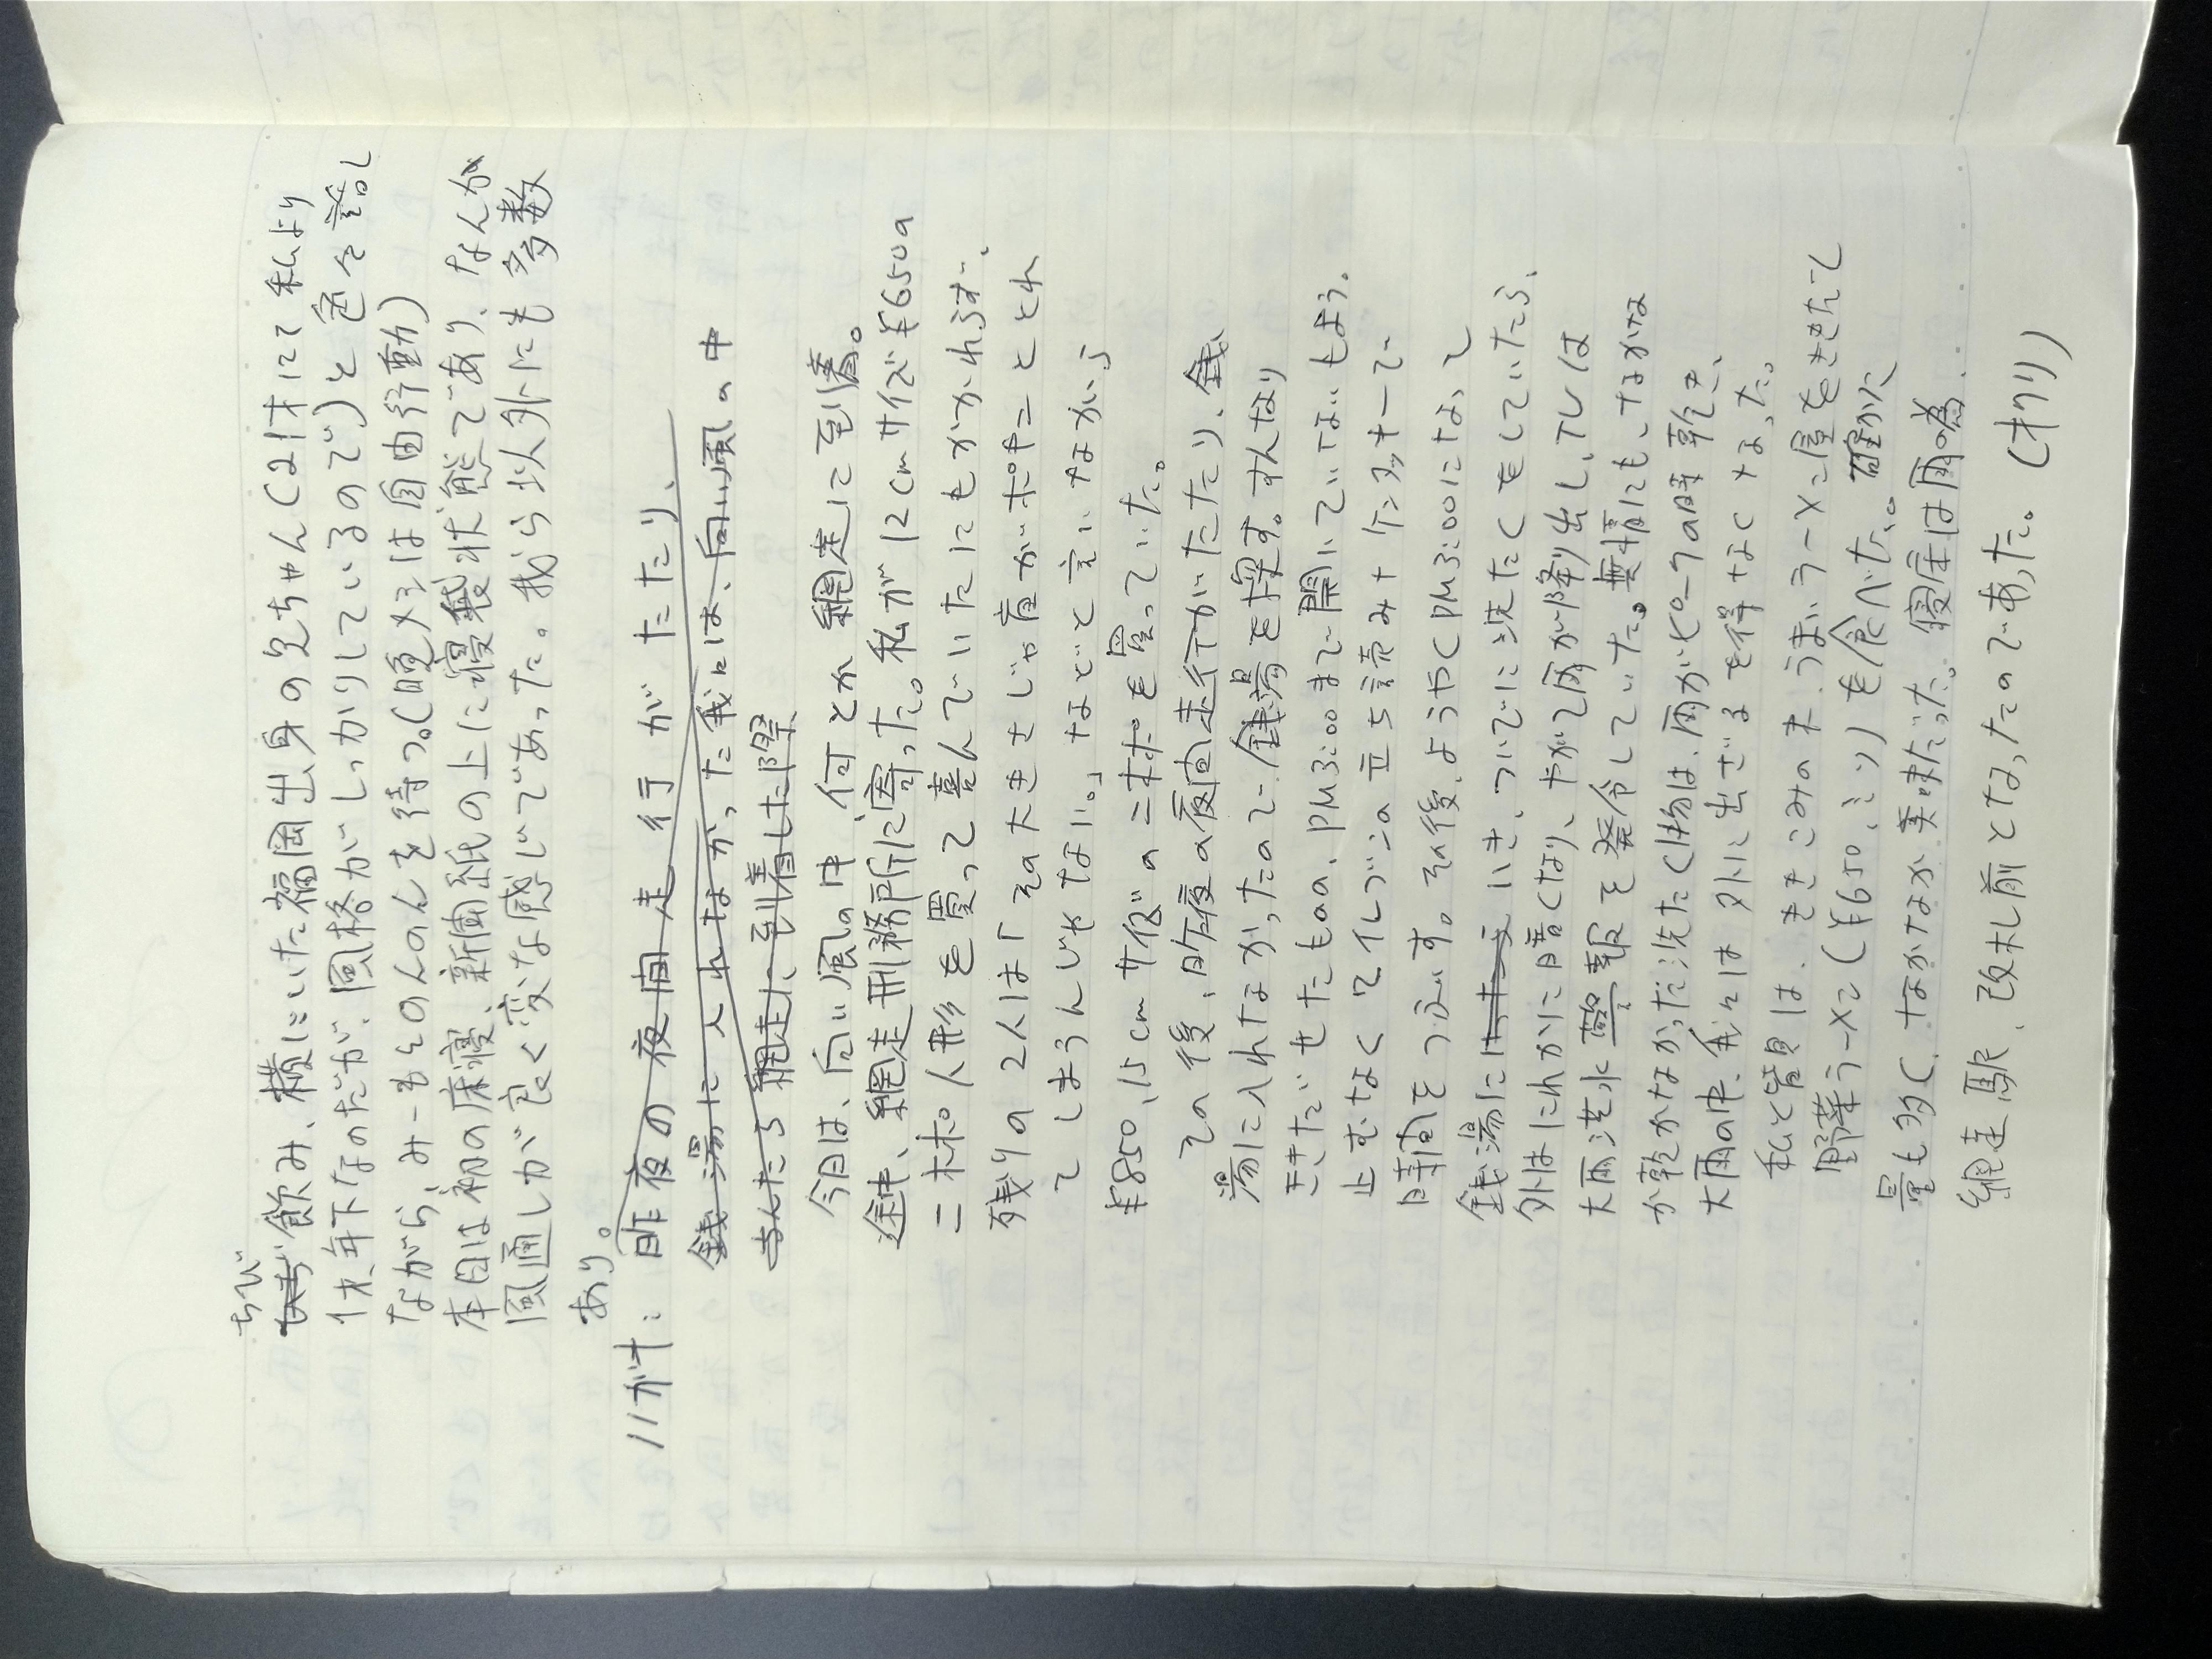 ちび
ちび飲み、横にいた福岡出身の兄ちゃん(21才にて私より
1才年下なのだが、風格がしっかりしているので)と色々話し
ながら、みーもとのんのんを待つ。(晩メシは自由行動)
本日は初の床寝、新聞紙の上に寝袋状態であり、なんか
風通しが良く変な感じであった。我ら以外にも多数
あり。
11がけ: 昨夜の夜間走行がたたり、
銭湯に入れなかった我には、向い風の中
さんたら網走に到着した際
今日は、向い風の中、何とか網走に到着。
途中、網走刑務所に寄った。私が12cmサイズ¥650の
ニポポ人形を買って喜んでいたにもかかわらず、
残りの2人は「その大きさじゃ首がポキンととれ
てしまうんじゃない。」などと言いながら
¥850、15cmサイズのニポポを買っていた。
その後、昨夜の夜間走行がたたり、銭
湯に入れなかったので銭湯を探す。すんなり
きただせたものの、PM3:00まで開いていないもよう。
止むなくセイレブンの立ち読み+ケンタッキーで
時間をつぶす。その後、ようやくPM3:00になって
銭湯に いき、ついでに洗たくをしていたら、
外はにわかに暗くなり、やがて雨が降り出し、TVは
大雨洪水警報を発令していた。無情にも、なかな
か乾かなかった洗たく物は、雨がピークの時乾き、
大雨の中、我々は外に出ざるを得なくなった。
私と皆見は、ききこみの末、うまいラーメン屋をききたて
野菜ラーメン(¥650、ミソ)を食べた。確かに
量も多く、なかなか美味だった。寝床は雨の為、
網走駅、改札前となったのであった。(オワリ)